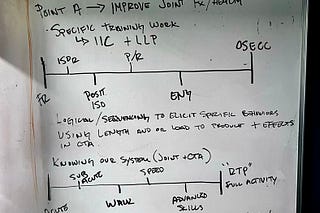 POINT A → IMPROVE JOINT FX/HEALTH
- SPECIFIC TRAINING WORK
↳ IIC + LLP
OSECC
ISPR P/R
FR POSIT. ISO ENG
LOGICAL/SEQUENCING TO ELICIT SPECIFIC BEHAVIORS
USING LENGTH AND OR LOAD TO PRODUCE + EFFECTS
IN CTA.
KNOWING OUR SYSTEM (JOINT + CTA)
"RTP"
SUB ACUTE SPEED FULL ACTIVITY
ACUTE WALK ADVANCED
SKILLS